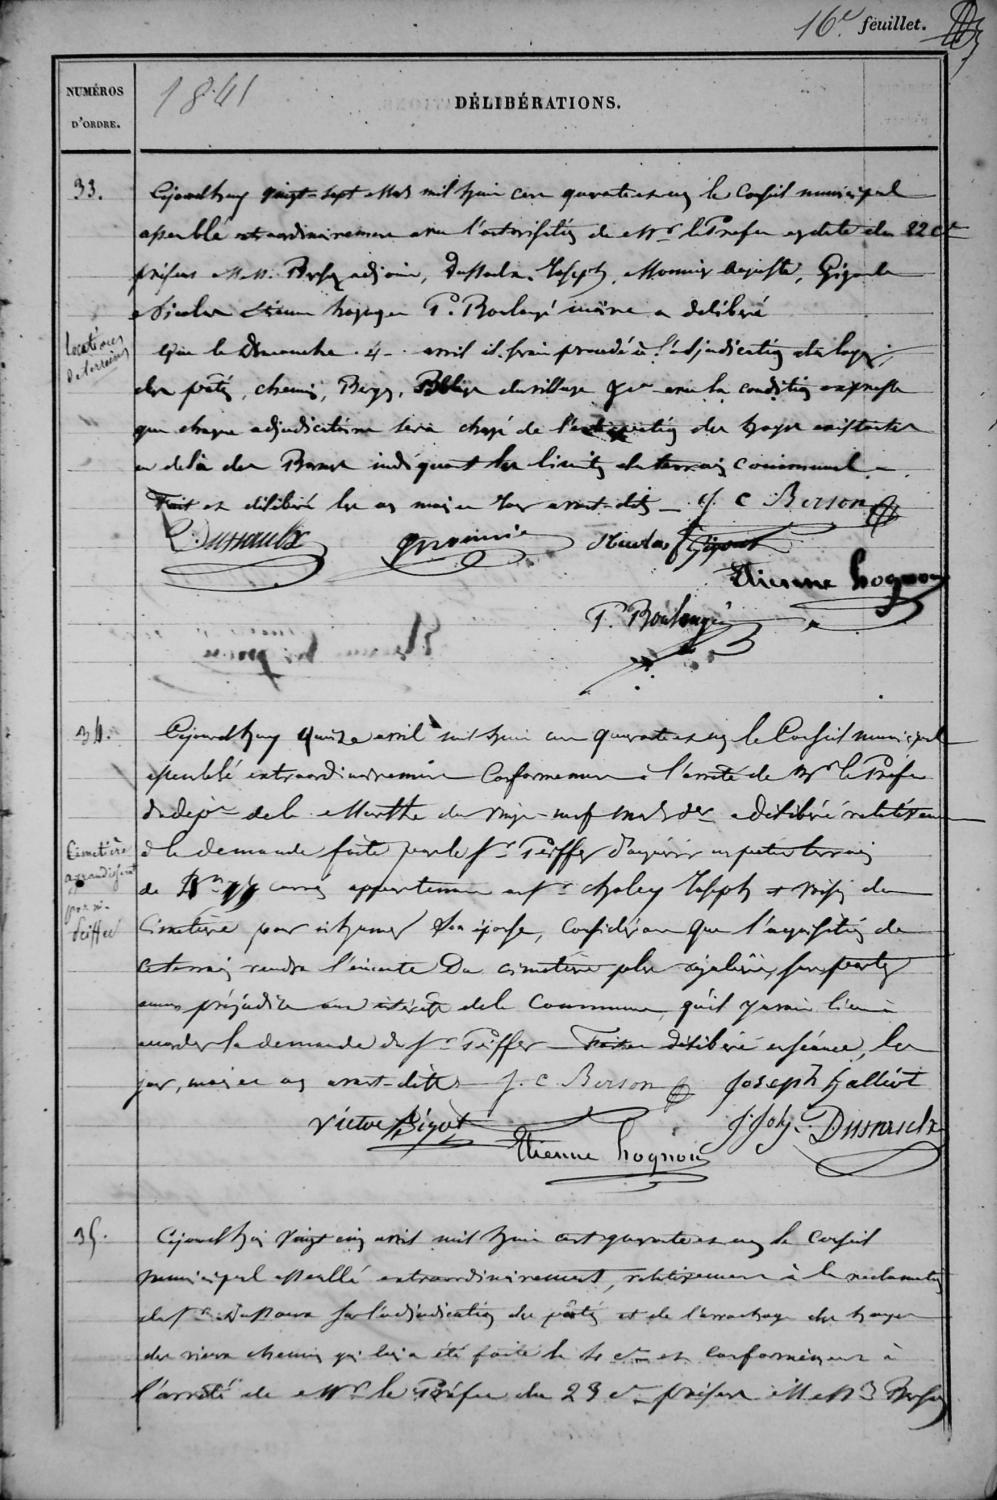 16e feuillet.
NUMÉROS
D'ORDRE.
1841
DÉLIBÉRATIONS.
33.
Cejourdhuy vingt-sept Mars mil huit cent quarante et un le Conseil municipal
assemblé extraordinairement avec l'autorisation de Mr. le Préfet en date du 22 Ct
présens M.M. adjoint, Dussaulx Joseph, Monnier Auguste, Gigout
Nicolas Etienne hognon P. Boulangé maire a délibéré
Locations
de terrains
Que le Dimanche 4 avril il sera procédé à l'adjudication
des pâtis, chemins, du village avec la condition expresse
que chaque adjudicataire sera chargé de des hayes existantes
au delà des Bornes indiquant les limites du terrain communal
Fait et délibéré les an mois et jour avant-dits J. C Berson
Dussaulx Nicolas Gigout
Etienne hognon
P. Boulangé
34.
Cejourdhuy quinze avril mil huit cent quarante et un le Conseil municipal
assemblé extraordinairement Conformément à l'arrêté de Mr le Préfet
du dépt de la Meurthe du vingt-neuf Mars der a délibéré relativement
Cimetière
agrandissement
par sr.
Peiffer
à la demande faite par le Sr Peiffer d'acquérir un petit terrain
de carrés appartenant au Sr Joseph et voisin du
Cimetière pour inhumer Son épouse, Considérant que l'acquisition de
ce terrain rendra l'enceinte Du cimetière plus régulière, sans porter
aucun préjudice aux intérêts de la Commune, qu'il y avait lieu à
accorder la demande du Sr Peiffer Fait et délibéré en séance, les
jour, mois et an avant-dits J. C. Berson Joseph
Victor Bigot Dussaulx
Etienne hognon
35.
Cejourdhui vingt cinq avril mil huit cent quarante et un le Conseil
municipal assemblé extraordinairement, relativement à la réclamation
du Sr sur l'adjudication des pâtis et de l'arrachage des hayes
des vieux chemins qui lui a été faite le 4 Ct et Conformément à
l'arrêté de Mr le Préfet du 23 Ct présens M M